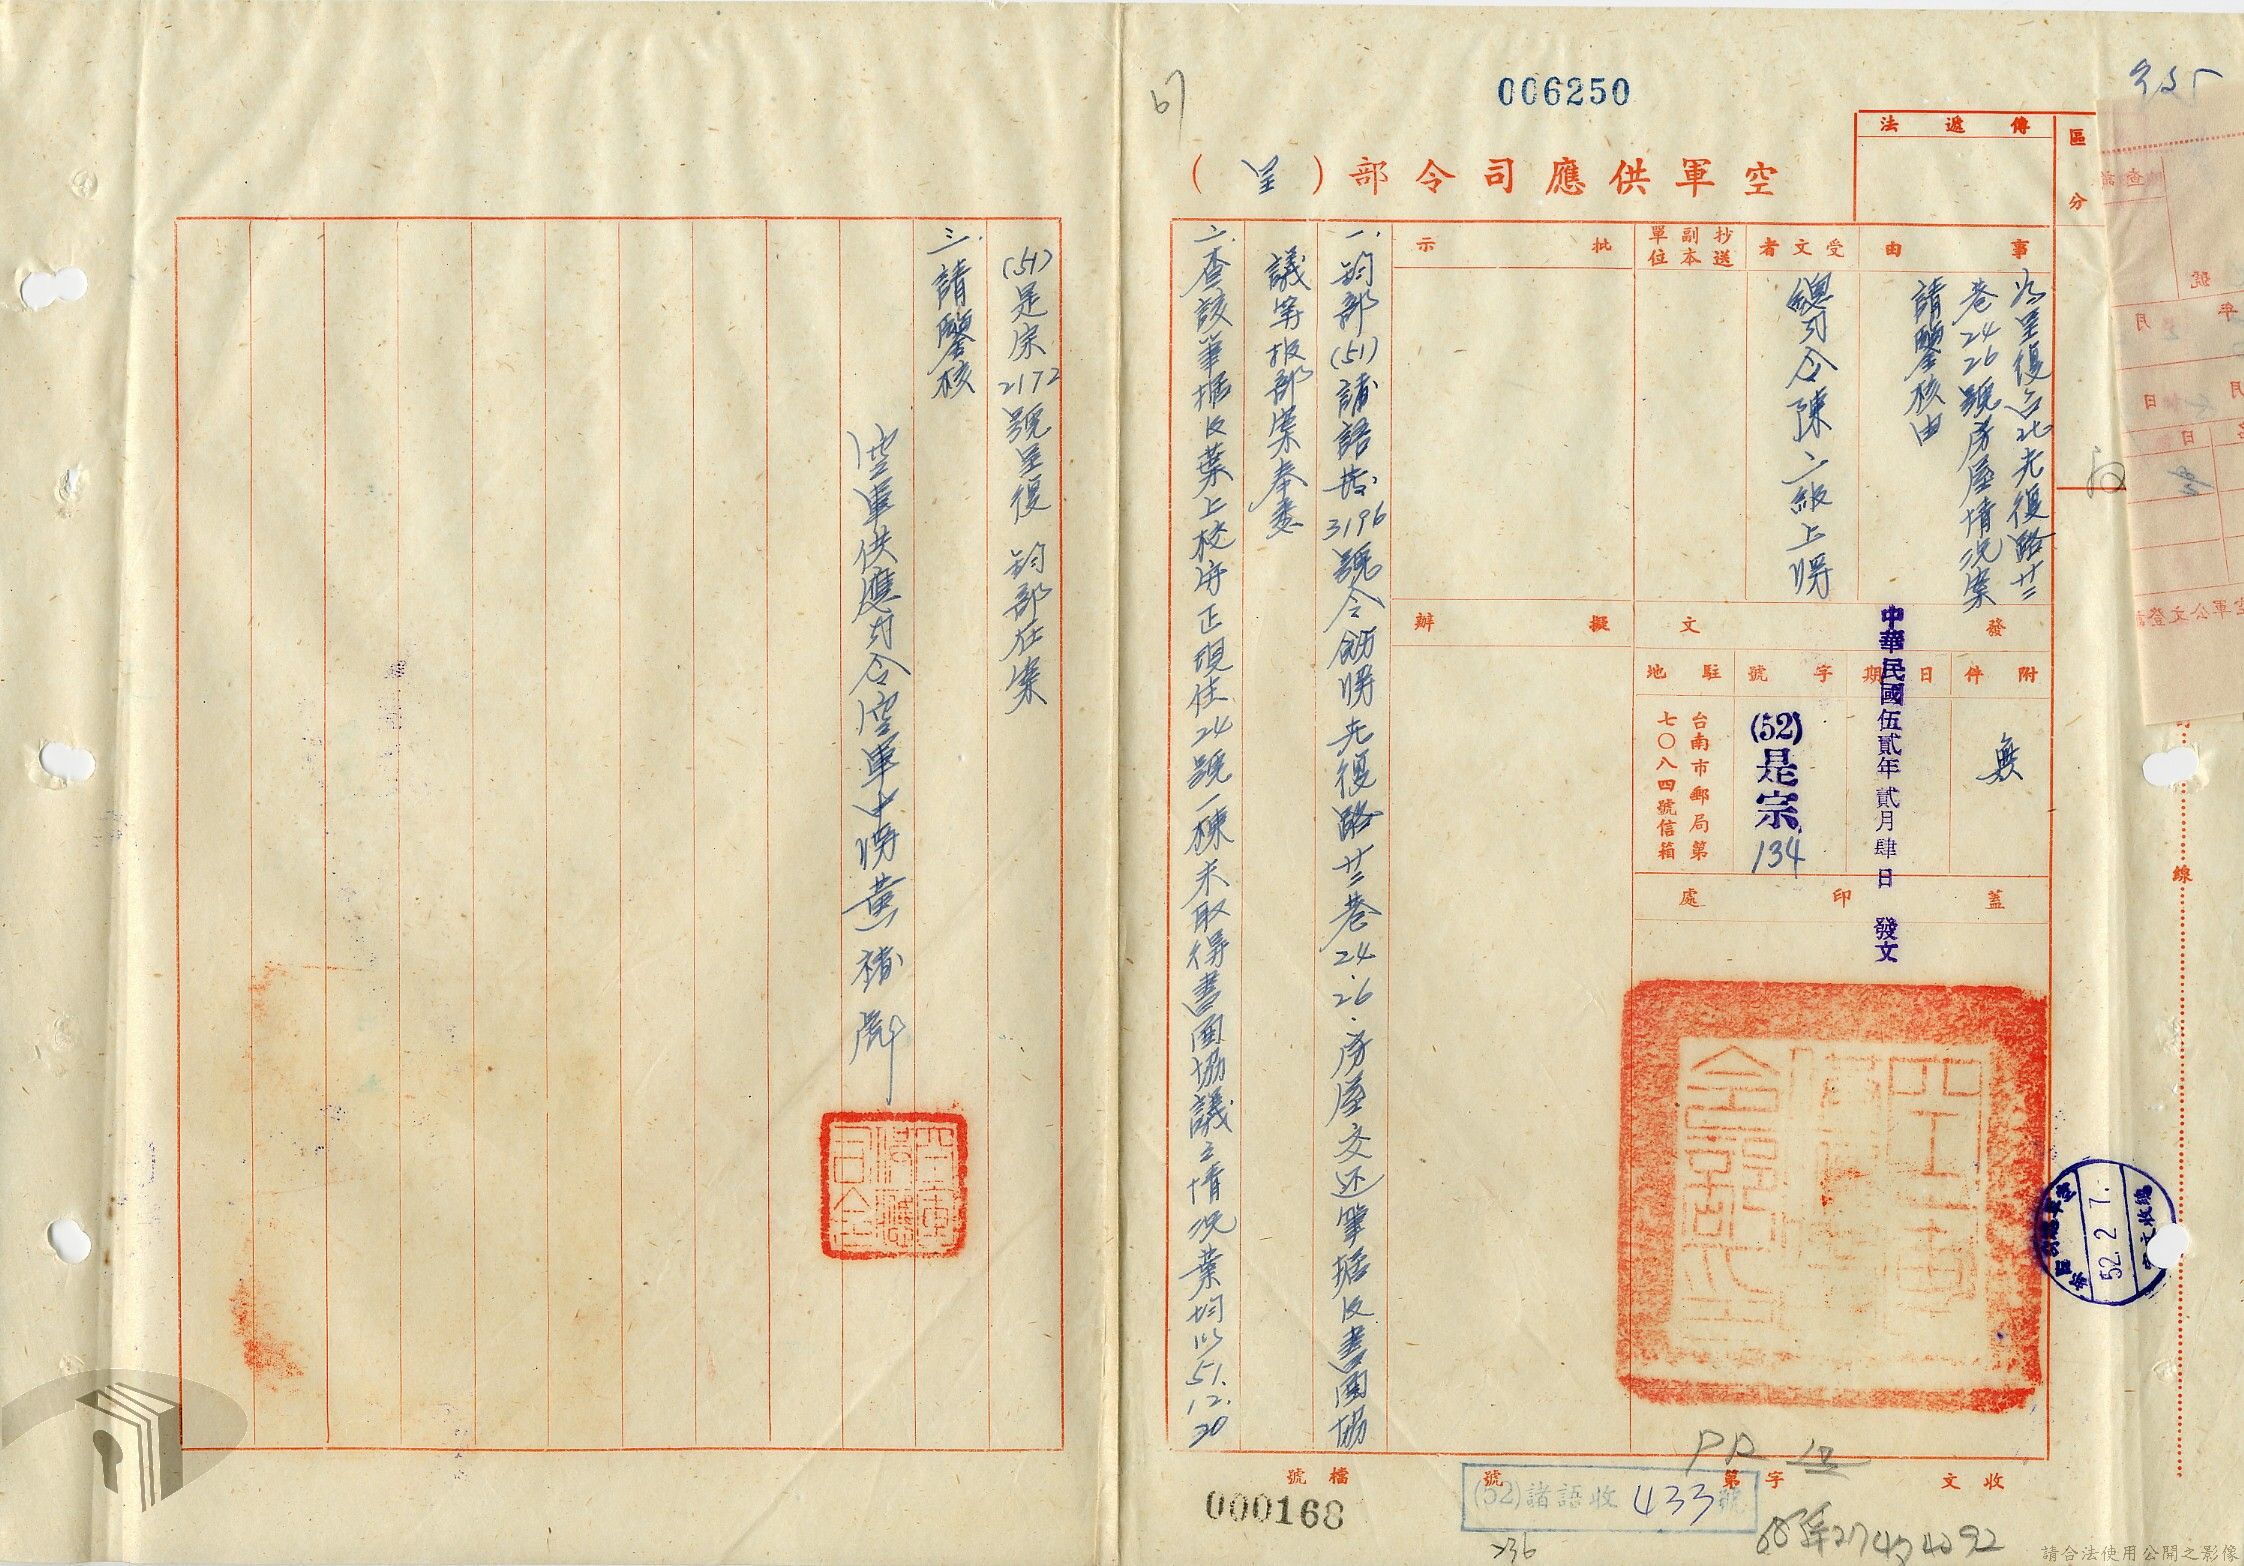 006250
空軍供應司令部（呈）
傳遞法
區分
事由
為呈復台北光復路廿二
巷24 26號房屋情況案
請鑒核由
受文者
總司令陳二級上將
抄送副本單位
批示
擬辦
發文
附件
無
日期
中華民國伍貳年貳月肆日 發文
字號
(52)是宗134
駐地
台南市郵局第
七〇八四號信箱
蓋印處
一.鈞部(51)諸語字3196號令飭將光復路廿二巷24.26.房屋交还筆据及書面協
議等報部案奉悉
二.查該筆据及葉上校守正現住24號一棟未取得書面協議之情況業均以51.12.20
(51)是宗2172號呈復 鈞部在案
三.請鑒核
空軍供應司令空軍中將黃
空軍供應司令
52.2.7.
收文
字第
號
(52)諸語收433號
236
檔號
000168
線
請合法使用公開之影像